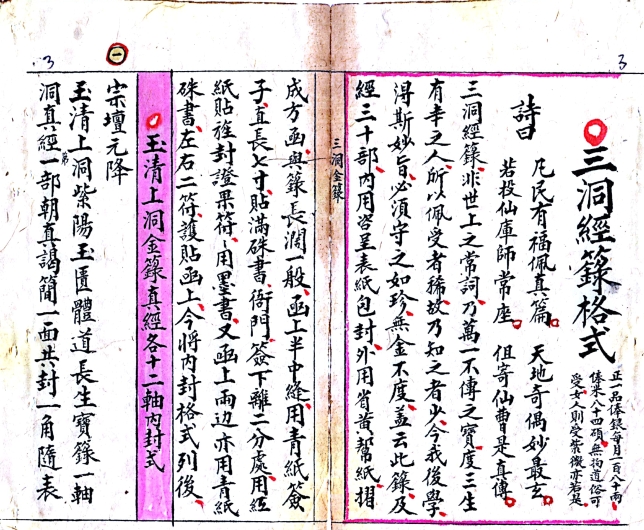 3
三洞經籙格式
正一品俸錄每月一百八十兩
俸米八十四碩無拘道俗可
受女人則受紫微亦若是
詩曰
凡民有福佩真篇 天地奇偶妙最玄
若投仙庫師常座 但寄仙曹是真傳
三洞經籙非世上之常詞乃萬一不傳之寶度三生
有幸之人所以佩受者稀故乃知之者少今我後學
得斯妙旨必須守之如珍無金不度蓋云此籙及
經三十部內用咨呈表紙包封外用省黃幫紙摺
三洞金籙
成方函與籙長濶一般函上半中縫用青紙簽
子直長七寸貼滿硃書衙門簽下離二分處用經
紙貼旌封證果符用墨書又函上兩邊亦用青紙
硃書左右二符護貼函上今將內封格式列後
玉清上洞金籙真經各十二軸內封式
宗壇元降
玉清上洞紫陽玉匱體道長生寶籙一軸
洞真經第一部朝真謁簡一面共封一角隨表
一
3